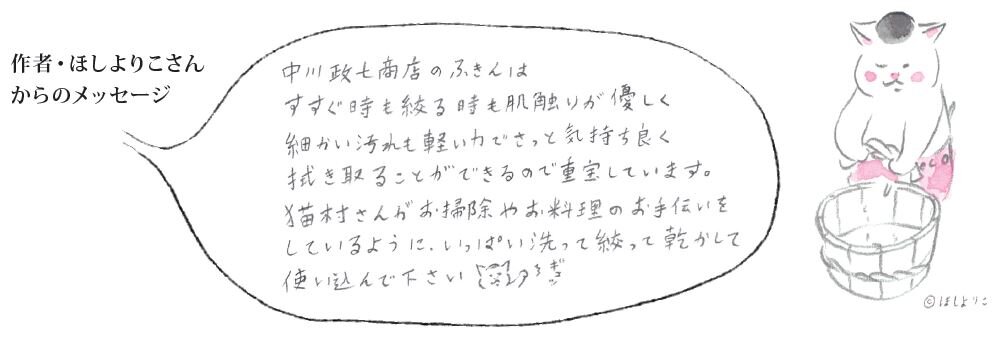 作者・ほしよりこさん
からのメッセージ
中川政七商店のふきんは
すすぐ時も絞る時も肌触りが優しく
細かい汚れも軽い力でさっと気持ち良く
拭き取ることができるので重宝しています。
猫村さんがお掃除やお料理のお手伝いを
しているように、いっぱい洗って絞って乾かして
使い込んで下さい
©ほしよりこ